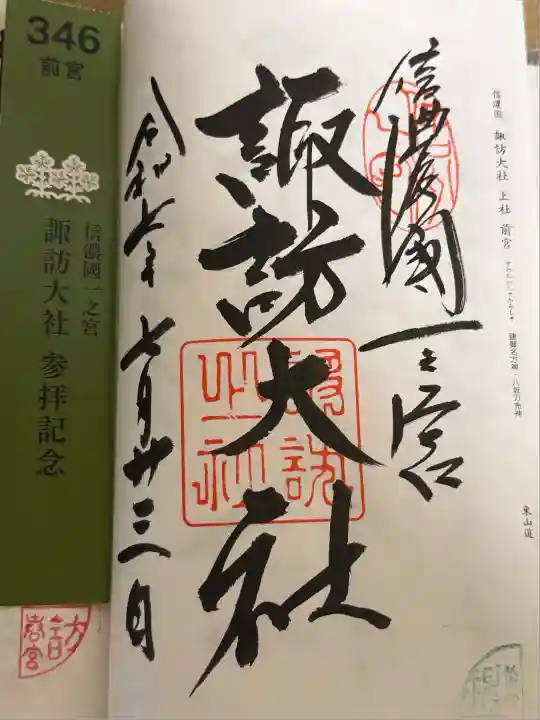 信濃國 諏訪大社 上社 前宮
すわたいしゃかみしゃ
建御名方神・八坂刀売神
東山道
信濃國一之宮
諏訪大社
令和七年七月廿三日
346
前宮
信濃國一之宮
諏訪大社 参拝記念